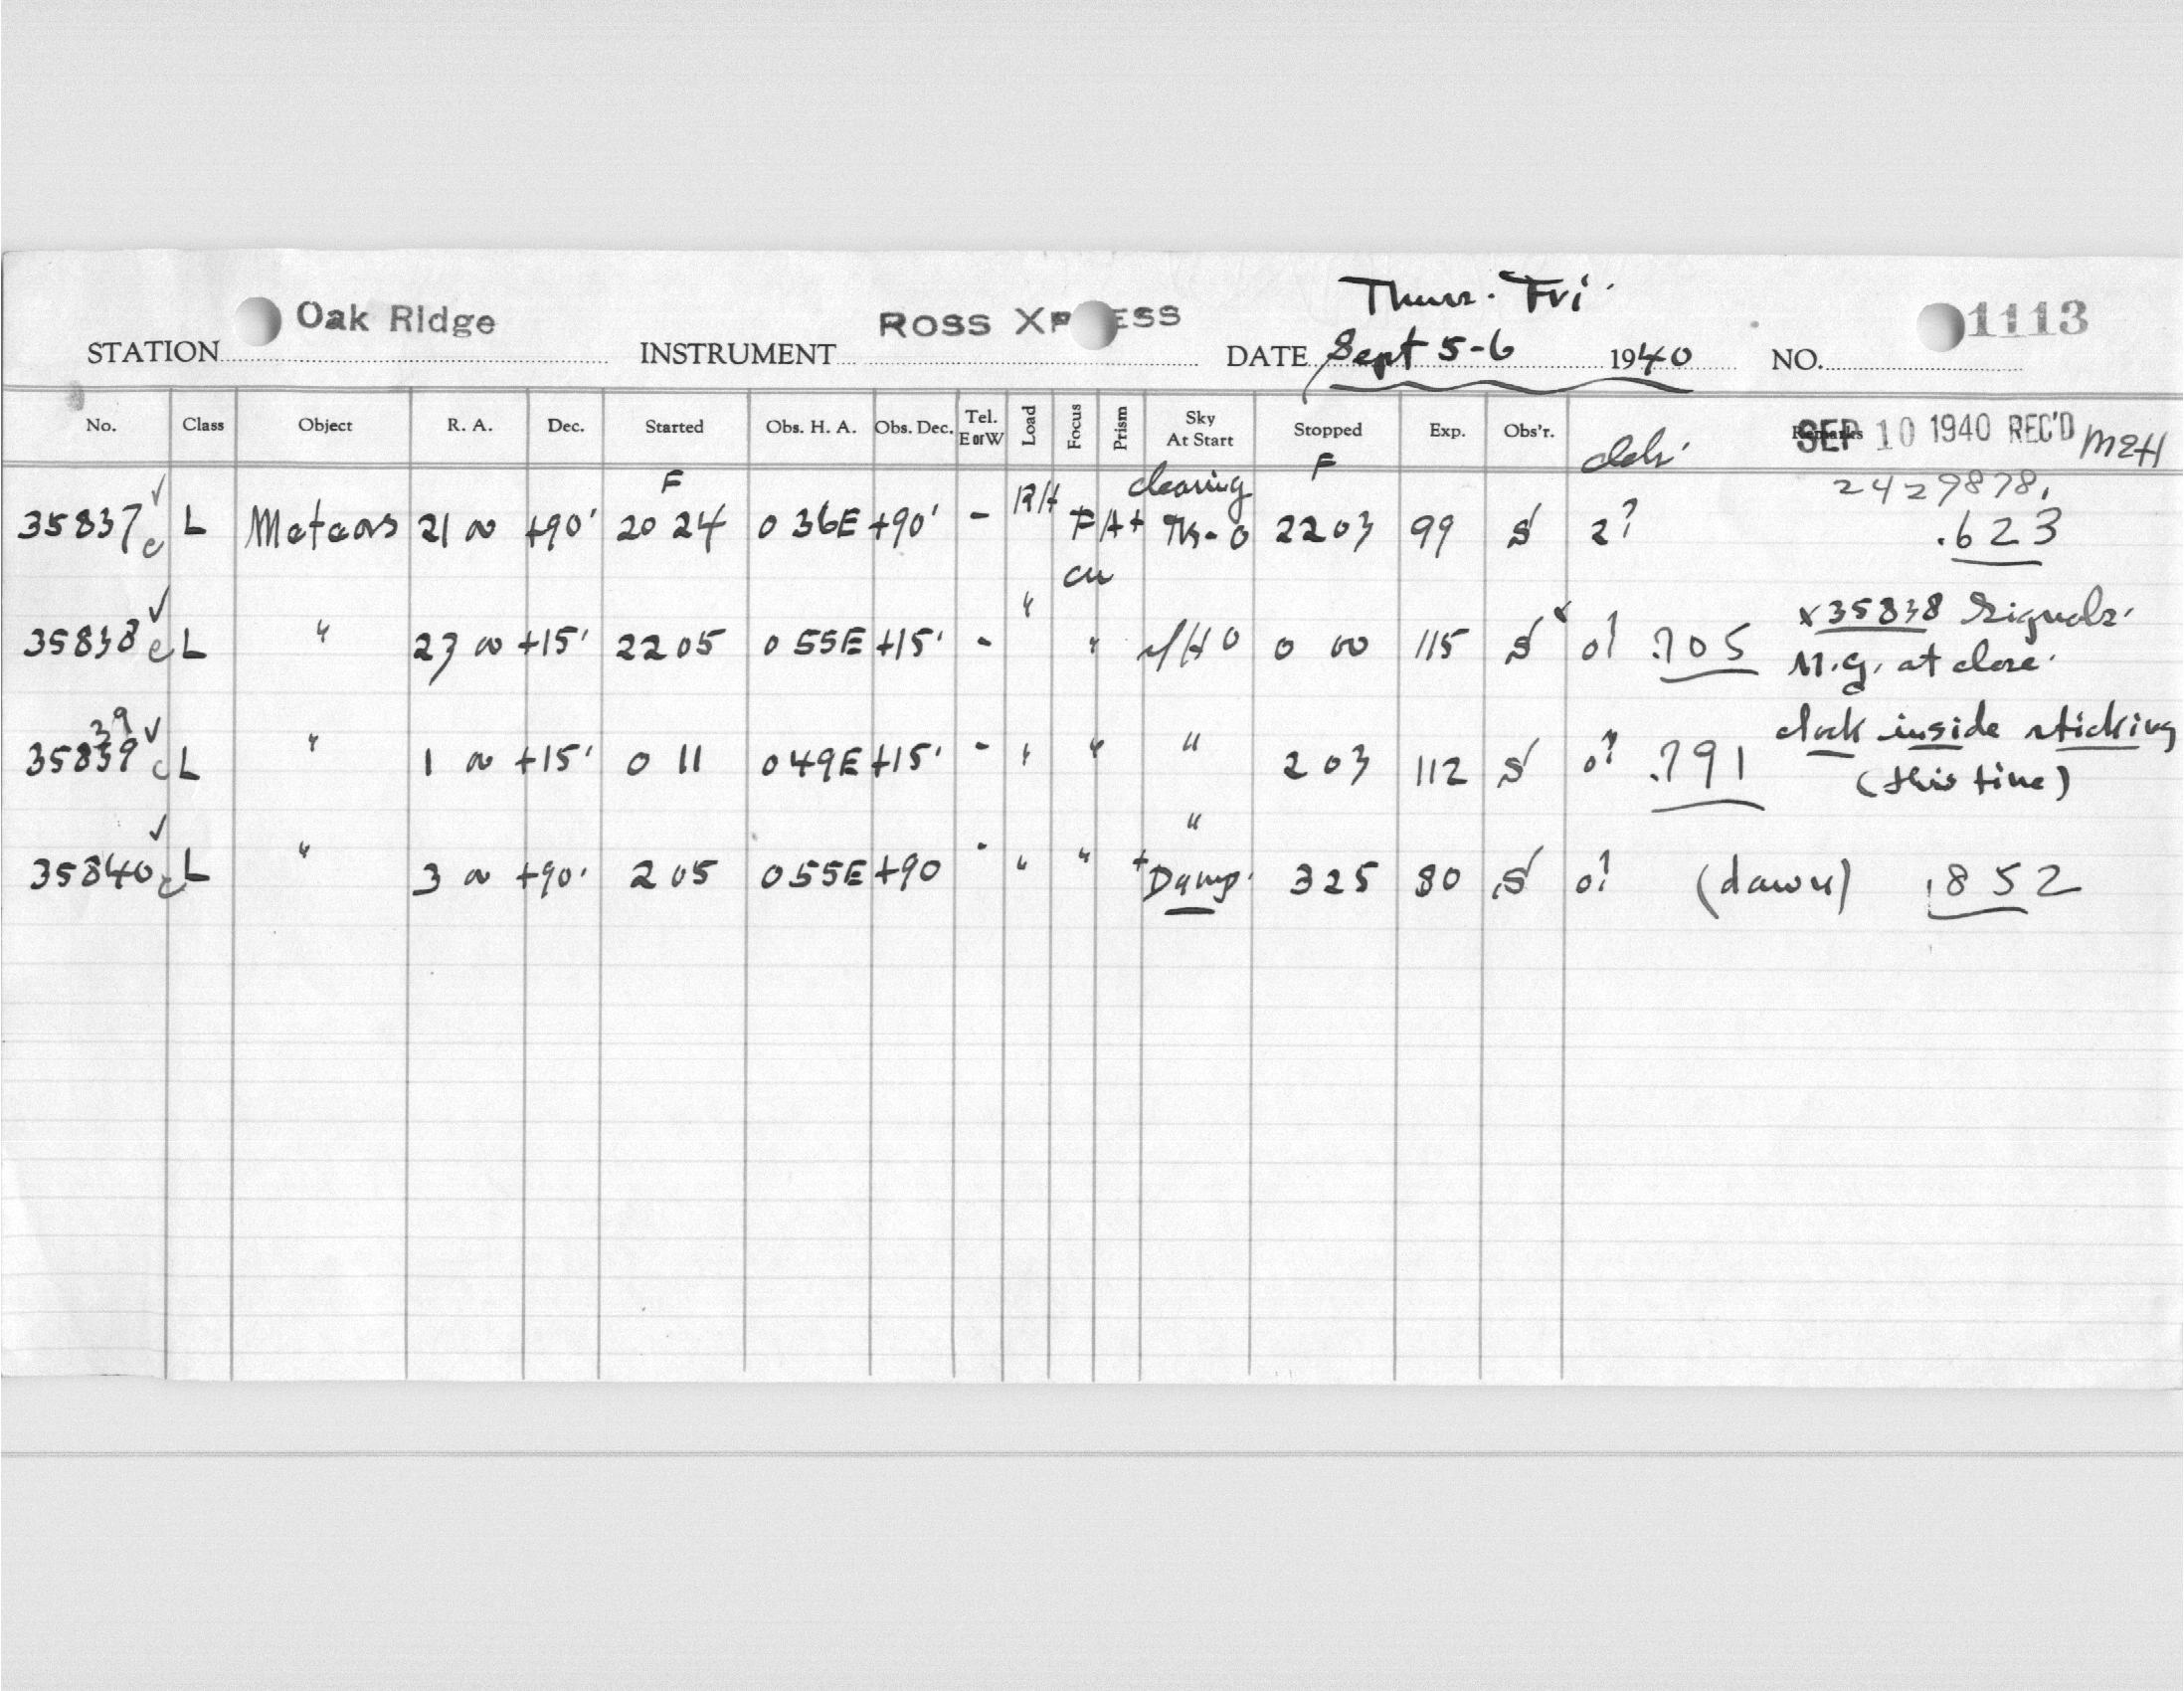 Thurs. Fri.
STATION Oak Ridge INSTRUMENT ROSS XPRESS DATE Sept 5-6 1940 NO. 1113
No. Class Object R. A. Dec. Started Obs. H. A. Obs. Dec. Tel. E or W Load Focus Prism Sky At Start Stopped Exp. Obs'r. Remarks
SEP 10 1940 REC'D
F clearing F 2429878.
35837 c L Meteors 21 00 +90' 20 24 0 36E +90' - RH F A+ 0 2203 99 S 2? .623
35838 c L " 23 00 +15' 22 05 0 55E +15' - " " 0 0 00 115 S x 0? .705 x 35838 Signals.
N.G. at close.
39
35839 c L " 1 00 +15' 0 11 0 49E +15' - " " " 2 03 112 S 0? .791 clock inside sticking
(this time)
"
35840 c L " 3 00 +90' 2 05 0 55E +90 - " " + Damp. 3 25 80 S 0? (dawn) .852